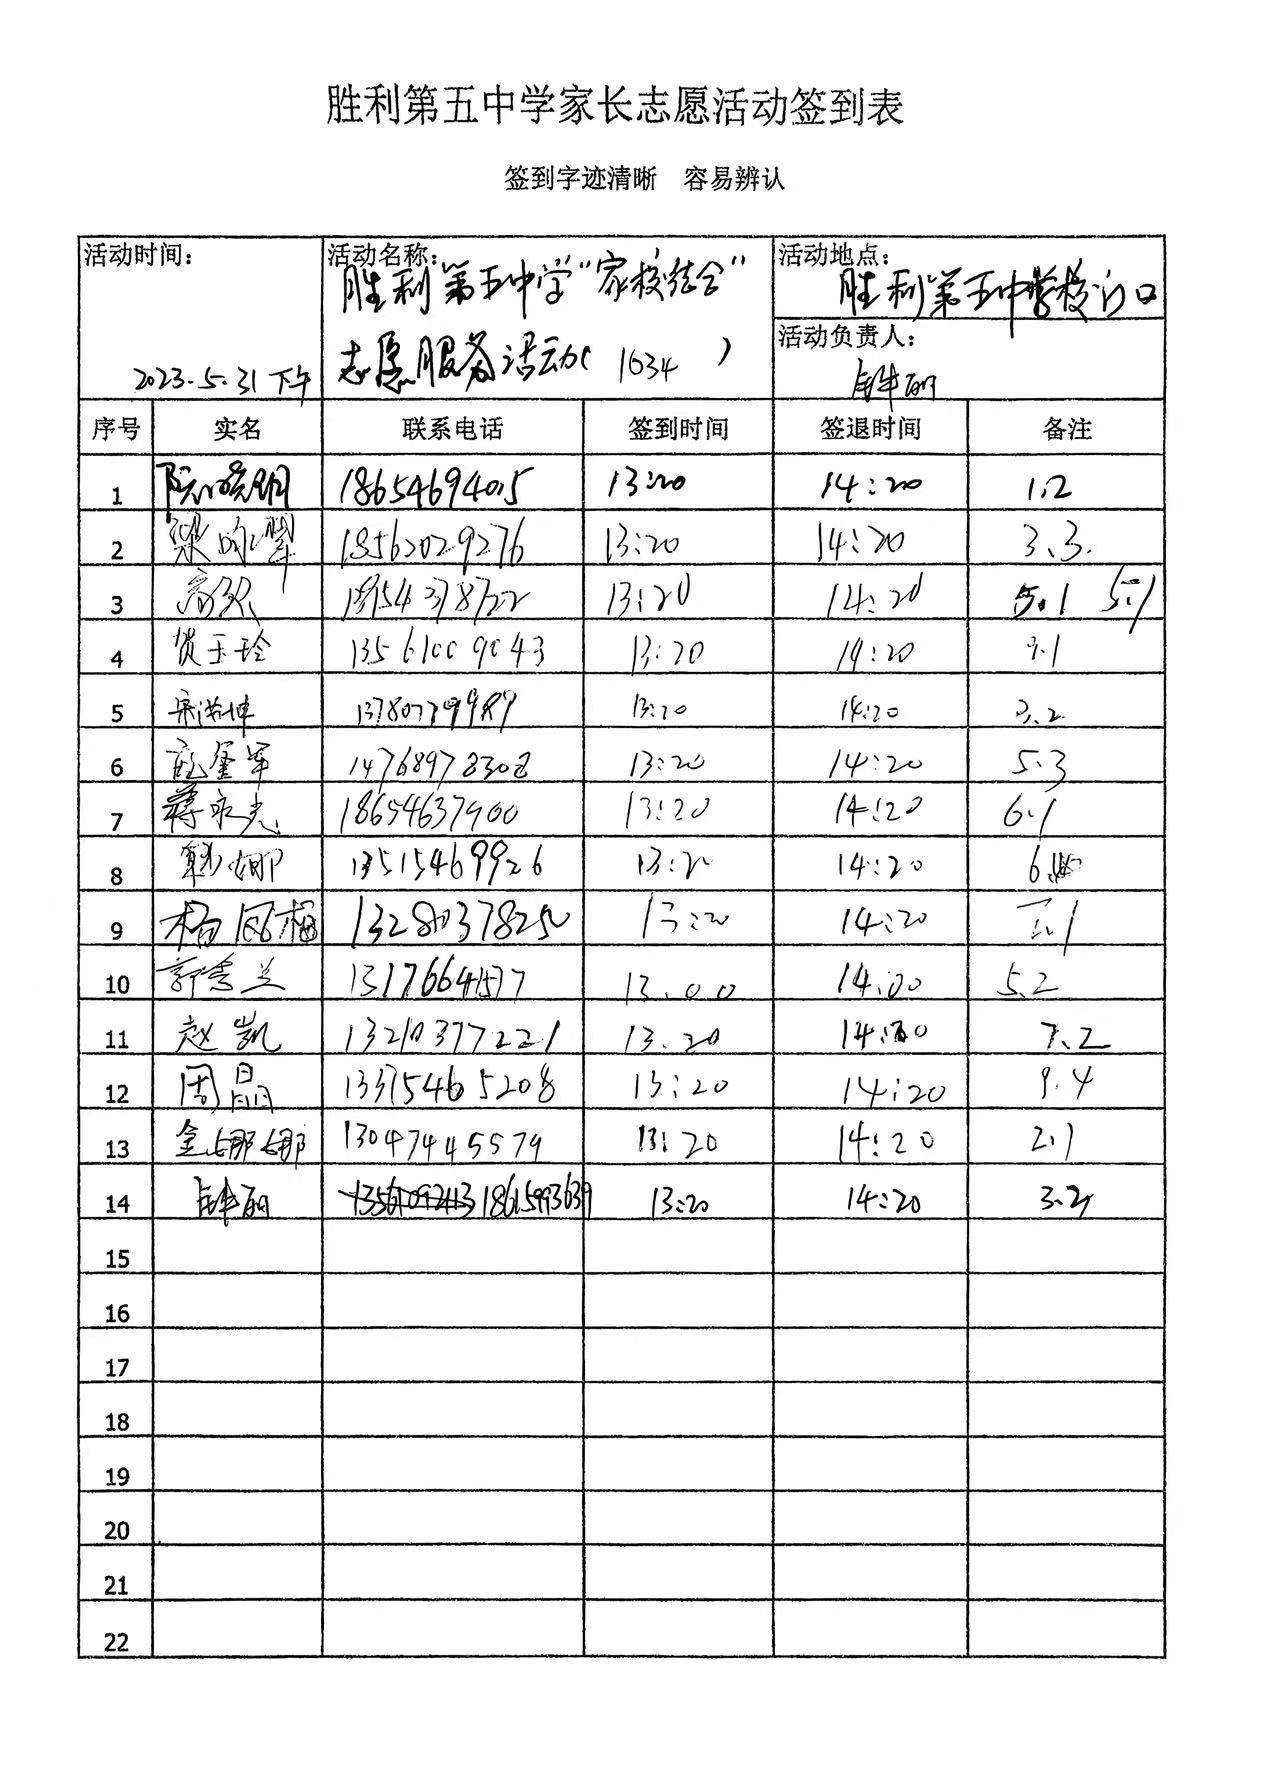 胜利第五中学家长志愿活动签到表
签到字迹清晰 容易辨认
活动时间: 2023.5.31下午
活动名称: 胜利第五中学“家校结合”
志愿服务活动( 1634 )
活动地点: 胜利第五中学校门口
活动负责人: 钟丽
序号 实名 联系电话 签到时间 签退时间 备注
1 18654694015 13:20 14:20 1.2
2 18562029276 13:20 14:20 3.3.
3 13:20 14:20 5.1 5.1
4 贺玉玲 13561009043 13:20 14:20 3.1
5 13:20 14:20 3.2
6 14768978308 13:20 14:20 5.3
7 蒋永志 18654637900 13:20 14:20 6.1
8 韩娜 13515469926 13:20 14:20
9 杨凤梅 13280378250 13:20 14:20
10 郭秀兰 13.00 14:00 5.2
11 赵凯 13210377221 13.20 7.2
12 周晶 13375465208 13:20 14:20 9.4
13 金娜娜 13047445579 13:20 14:20 2.1
14 钟丽 18615993639 13:20 14:20 3.2
15
16
17
18
19
20
21
22